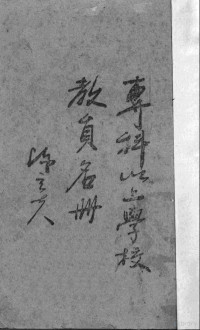 專科以上學校
教員名冊